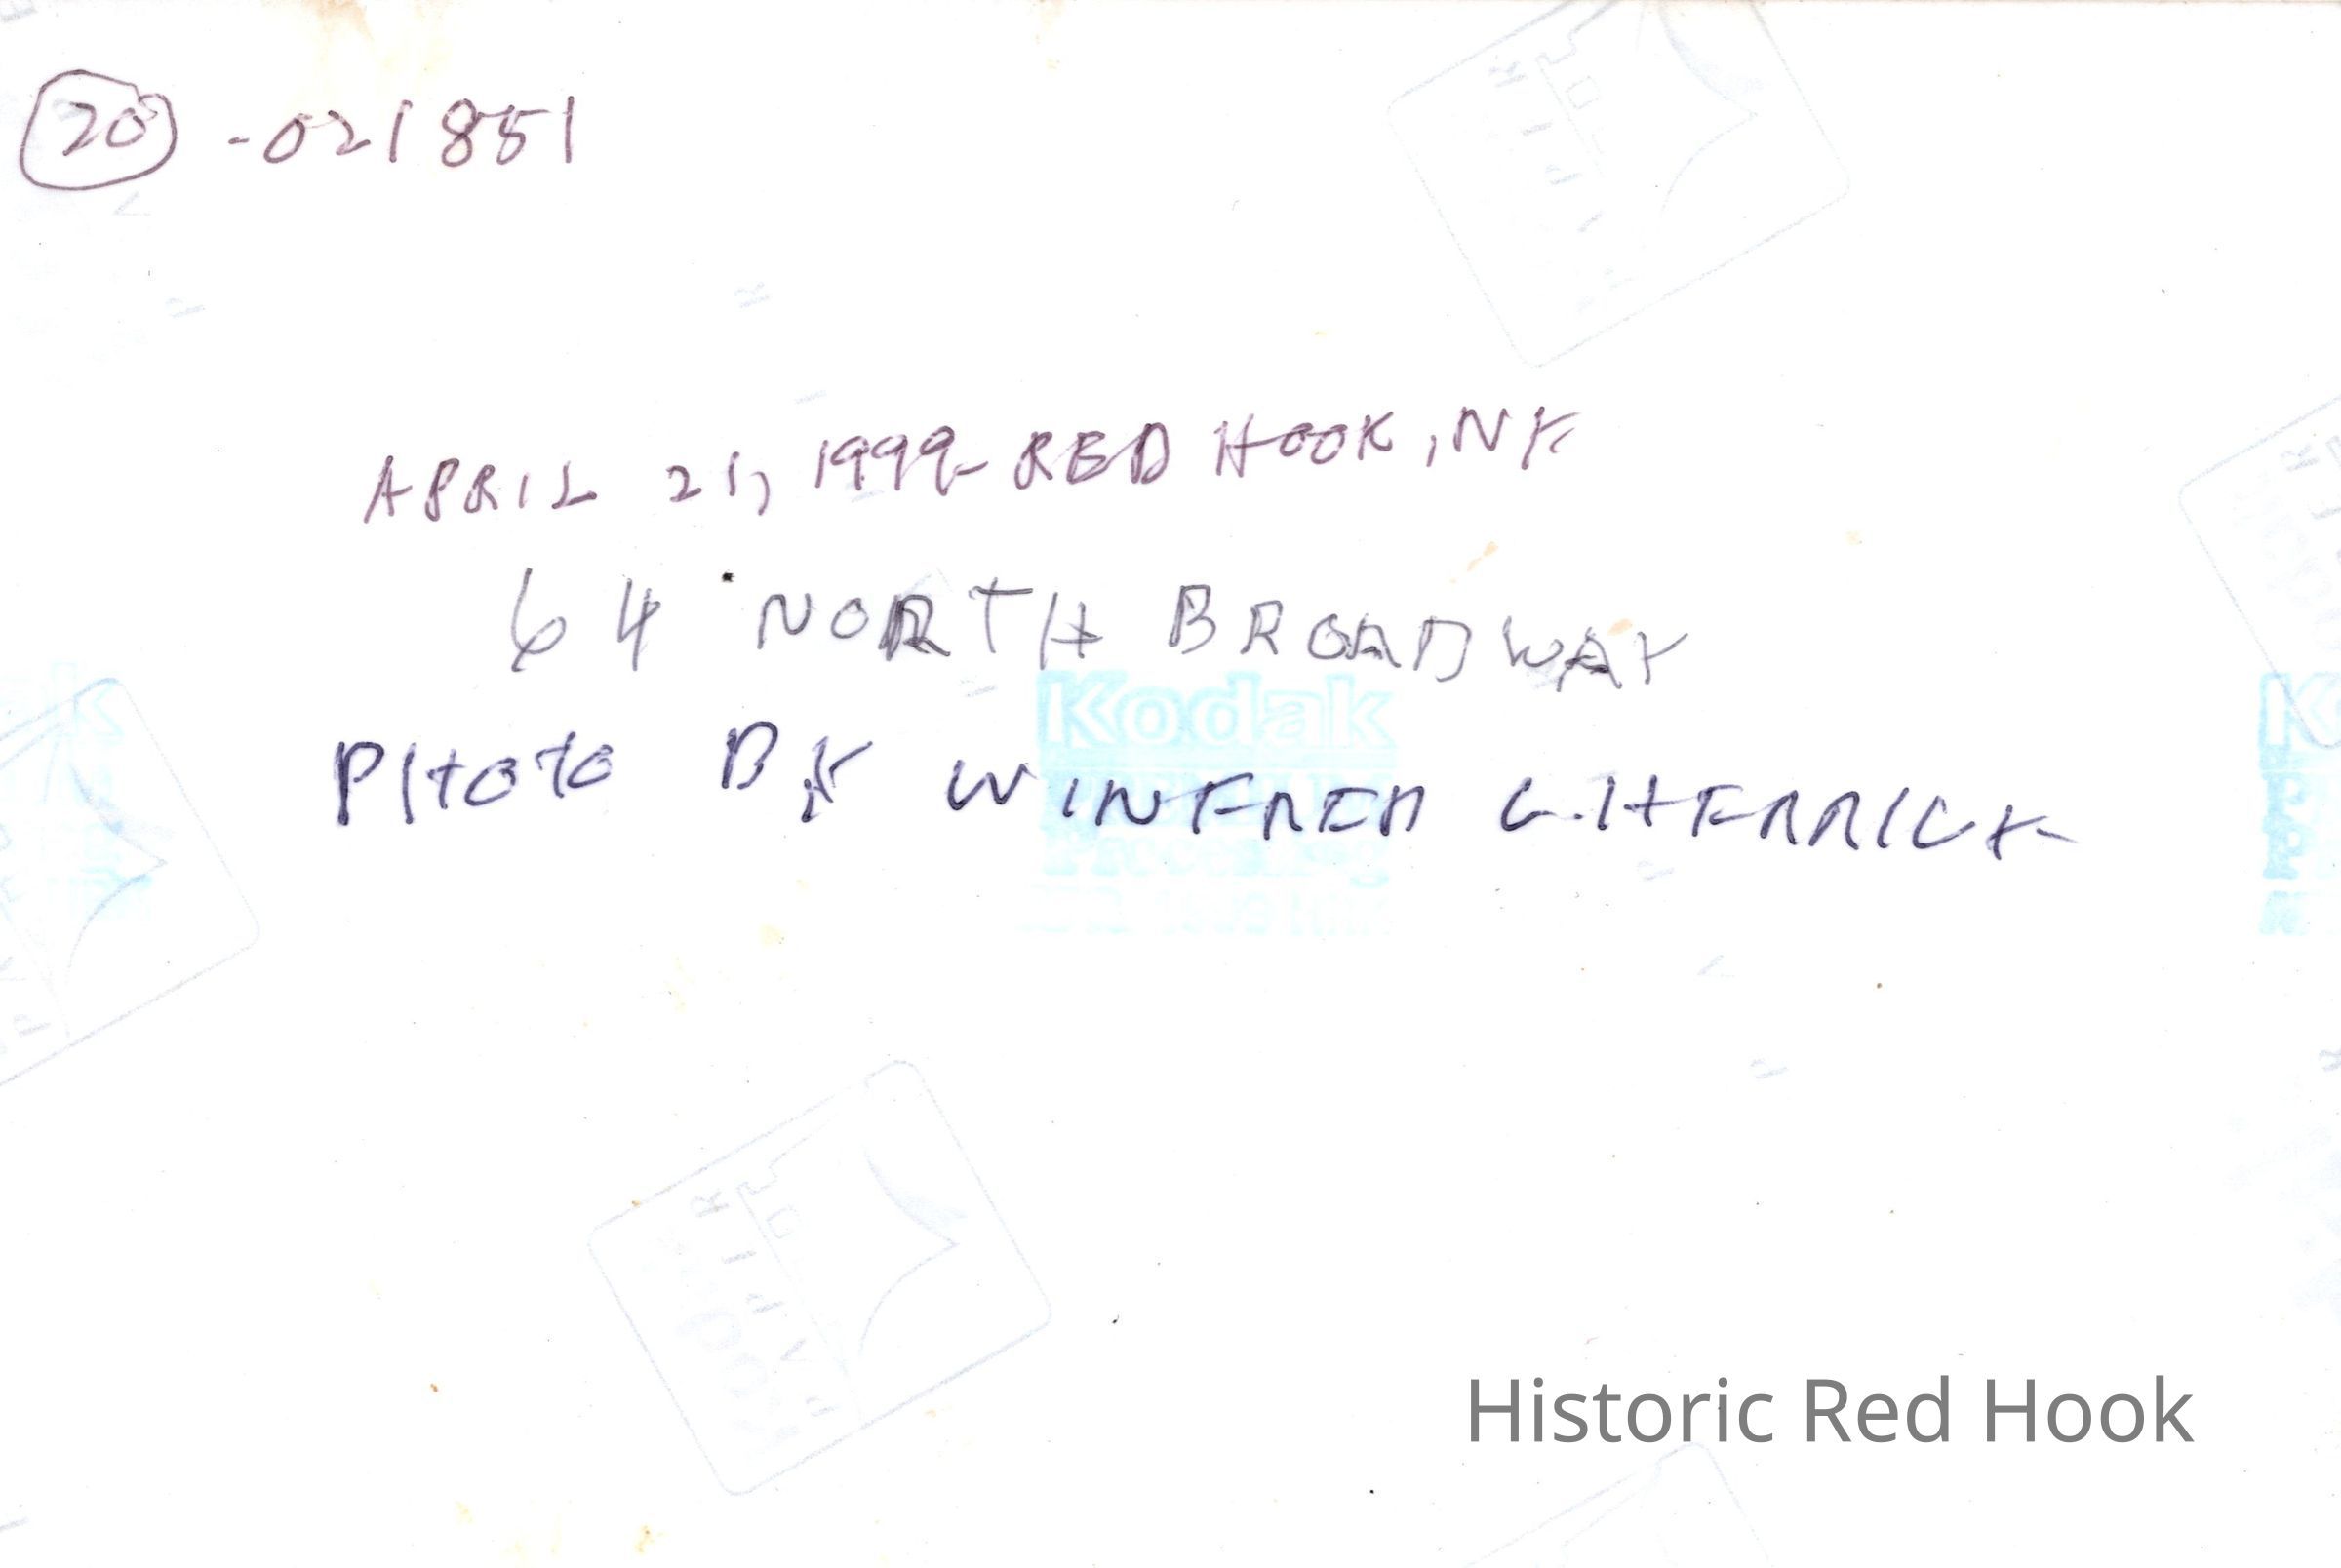 20 -021851
APRIL 21, 1999- RED HOOK, NY
64 NORTH BROADWAY
PHOTO BY WINFRED L. HERRICK
Kodak
Historic Red Hook